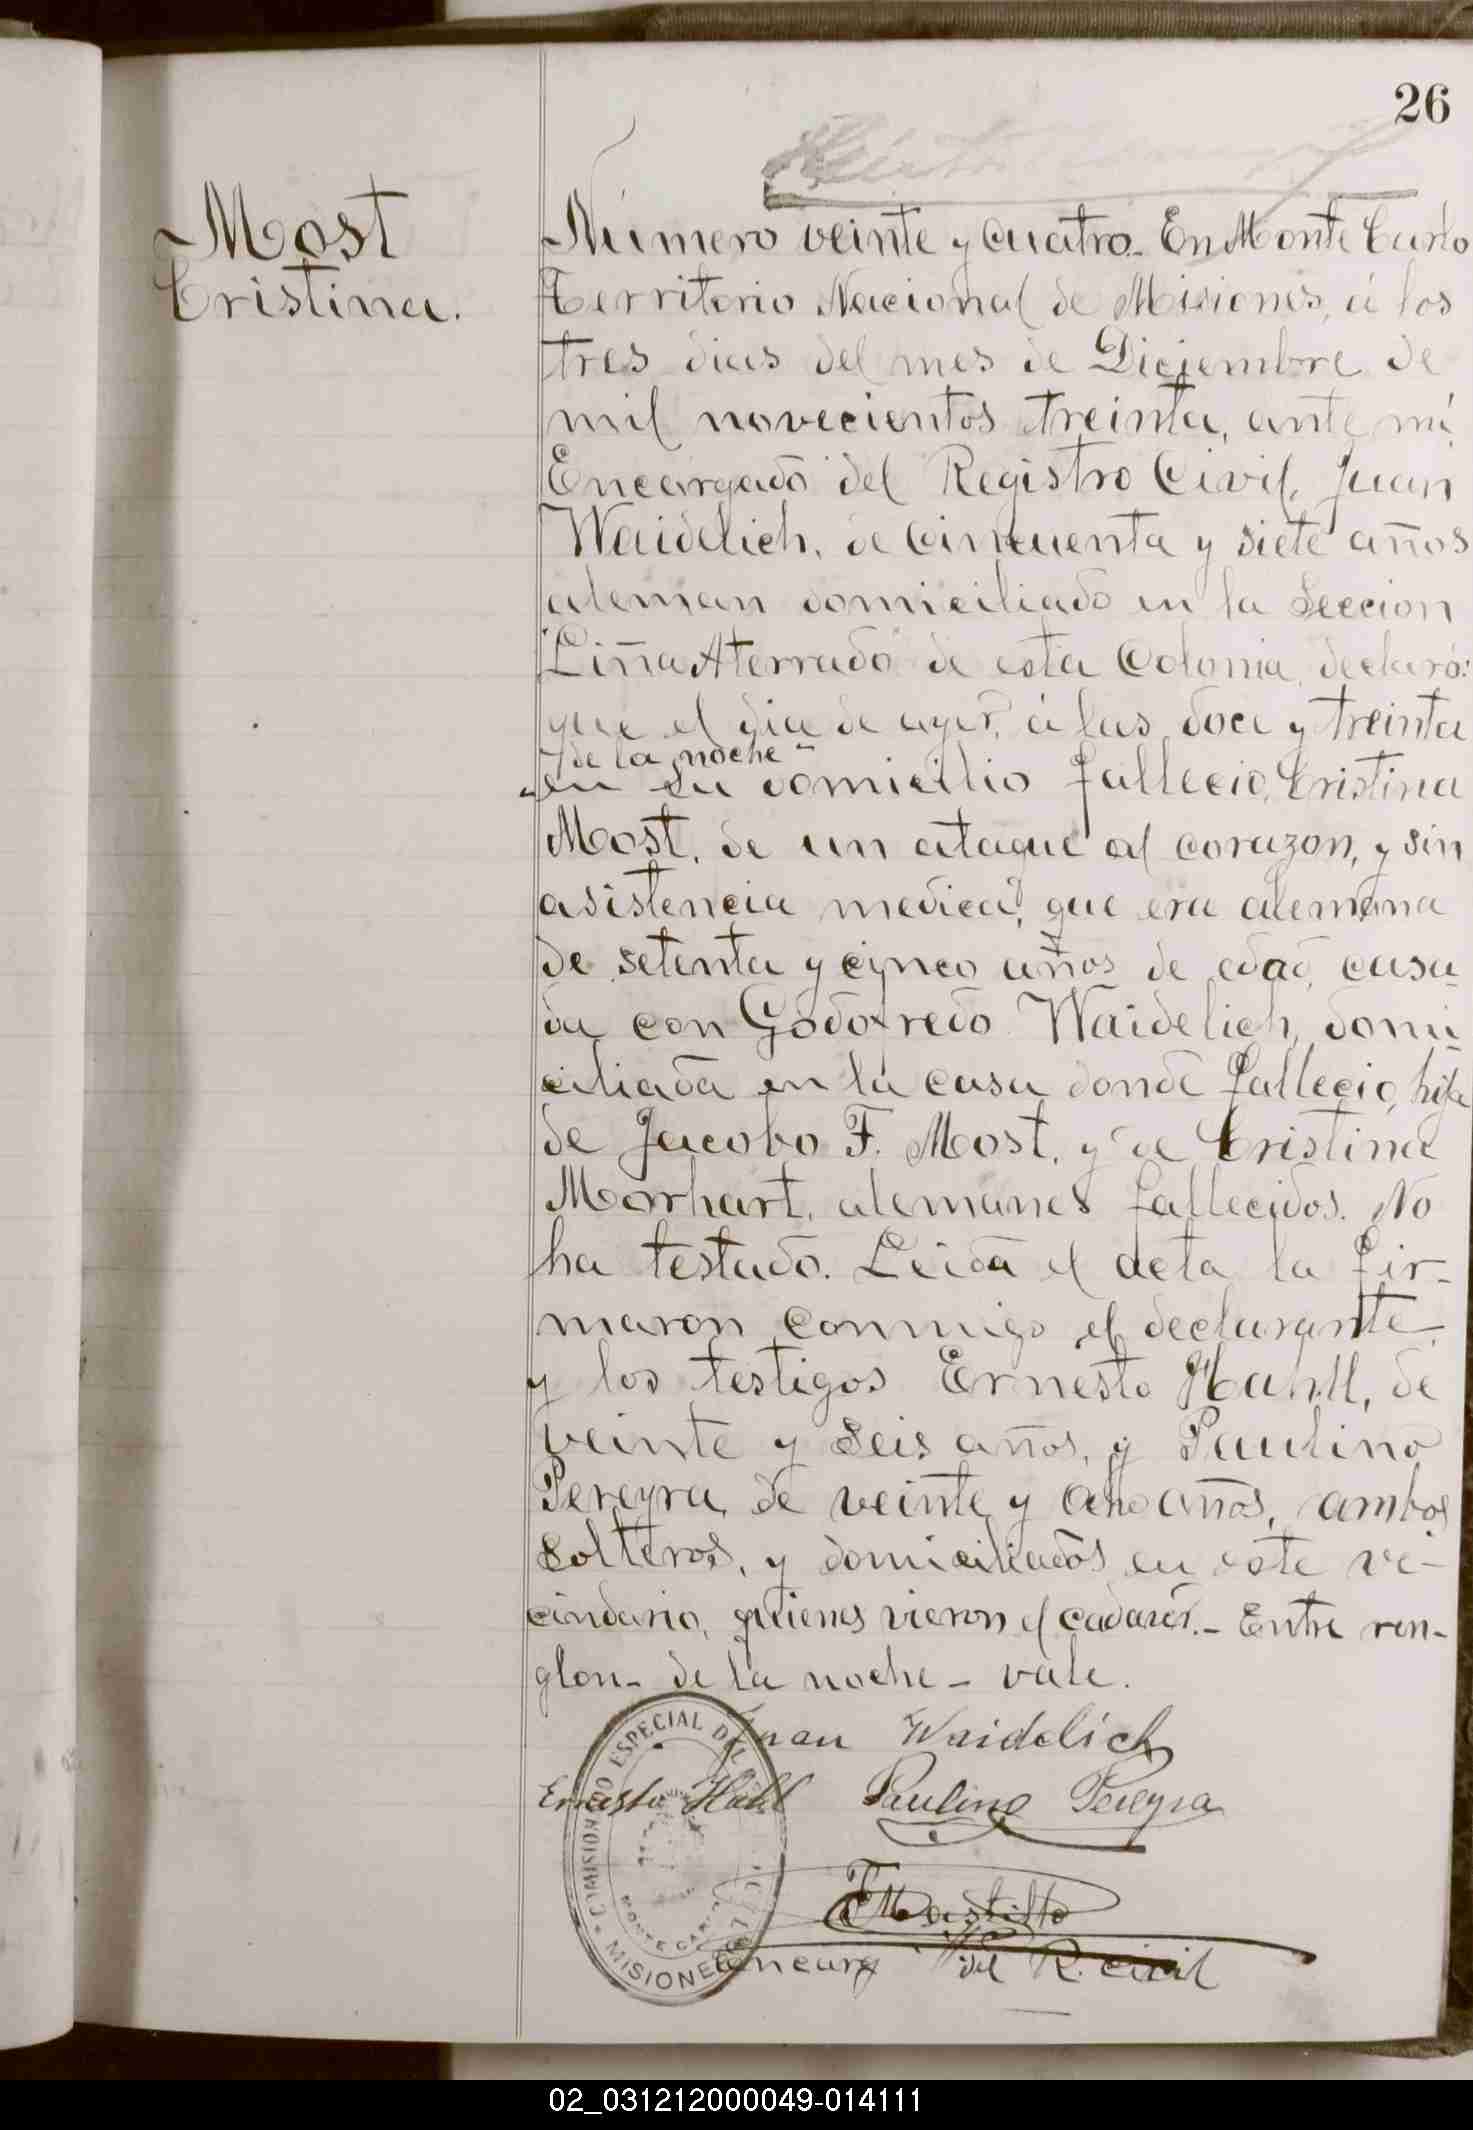 26
Most
Cristina.
Número veinte y cuatro.- En Monte Carlo
Territorio Nacional de Misiones, á los
tres dias del mes de Diciembre de
mil novecientos treinta, ante mi
Encargado del Registro Civil, Juan
Waidelich, de cincuenta y siete años
aleman domiciliado en la Seccion
Liña Aterrado de esta Colonia, declaró:
que el dia de ayer, á las doce y treinta
"de la noche"
en su domicilio fallecio, Cristina
Most, de un ataque al corazon, y sin
asistencia medica, que era alemana
de setenta y cinco años de edad, casa-
da con Godofredo Waidelich, domi-
ciliada en la casa donde fallecio, hija
de Jacobo F. Most, y de Cristina
Morhart, alemanes fallecidos. No
ha testado. Leida el acta la fir-
maron conmigo el declarante
y los testigos Ernesto Hahll, de
veinte y seis años, y Paulino
Pereyra, de veinte y ocho años, ambos
solteros, y domiciliados en este ve-
cindario, quienes vieron el cadaver.- Entre ren-
glon- de la noche - vale.
Juan Waidelich
Ernesto Hahl Paulino Pereyra
encarg del R. civil
COMISIONADO ESPECIAL DEL
MONTE CARLO
MISIONES
02_031212000049-014111